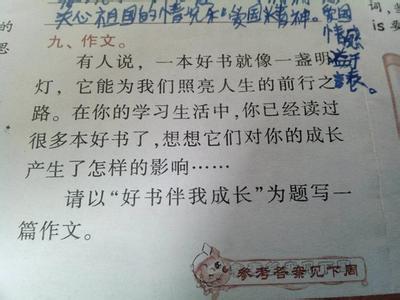 关心祖国的情况和爱国精神。爱国
情感
溢于
言表。
思
九、作文。
有人说，一本好书就像一盏明
灯，它能为我们照亮人生的前行之
路。在你的学习生活中，你已经读过
很多本好书了，想想它们对你的成长
产生了怎样的影响……
请以“好书伴我成长”为题写一
篇作文。
参考答案见下周